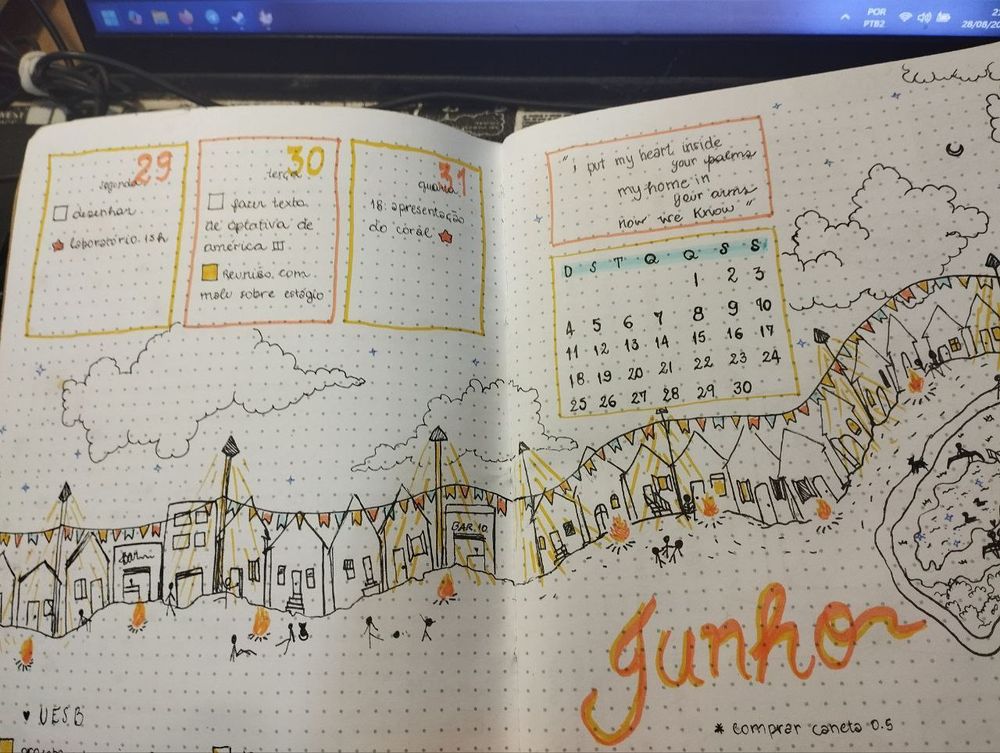 POR
PTB2
29
segunda
desenhar
laboratório 15h
30
terça
fazer texto
de optativa de
américa III
Reunião com
malu sobre estágio
31
quarta
18: apresentação
do coral
"i put my heart inside
your palms
my home in
your arms
now we know"
D S T Q Q S S
1 2 3
4 5 6 7 8 9 10
11 12 13 14 15 16 17
18 19 20 21 22 23 24
25 26 27 28 29 30
BAR 10
Junho
UESB
* comprar caneta 0.5